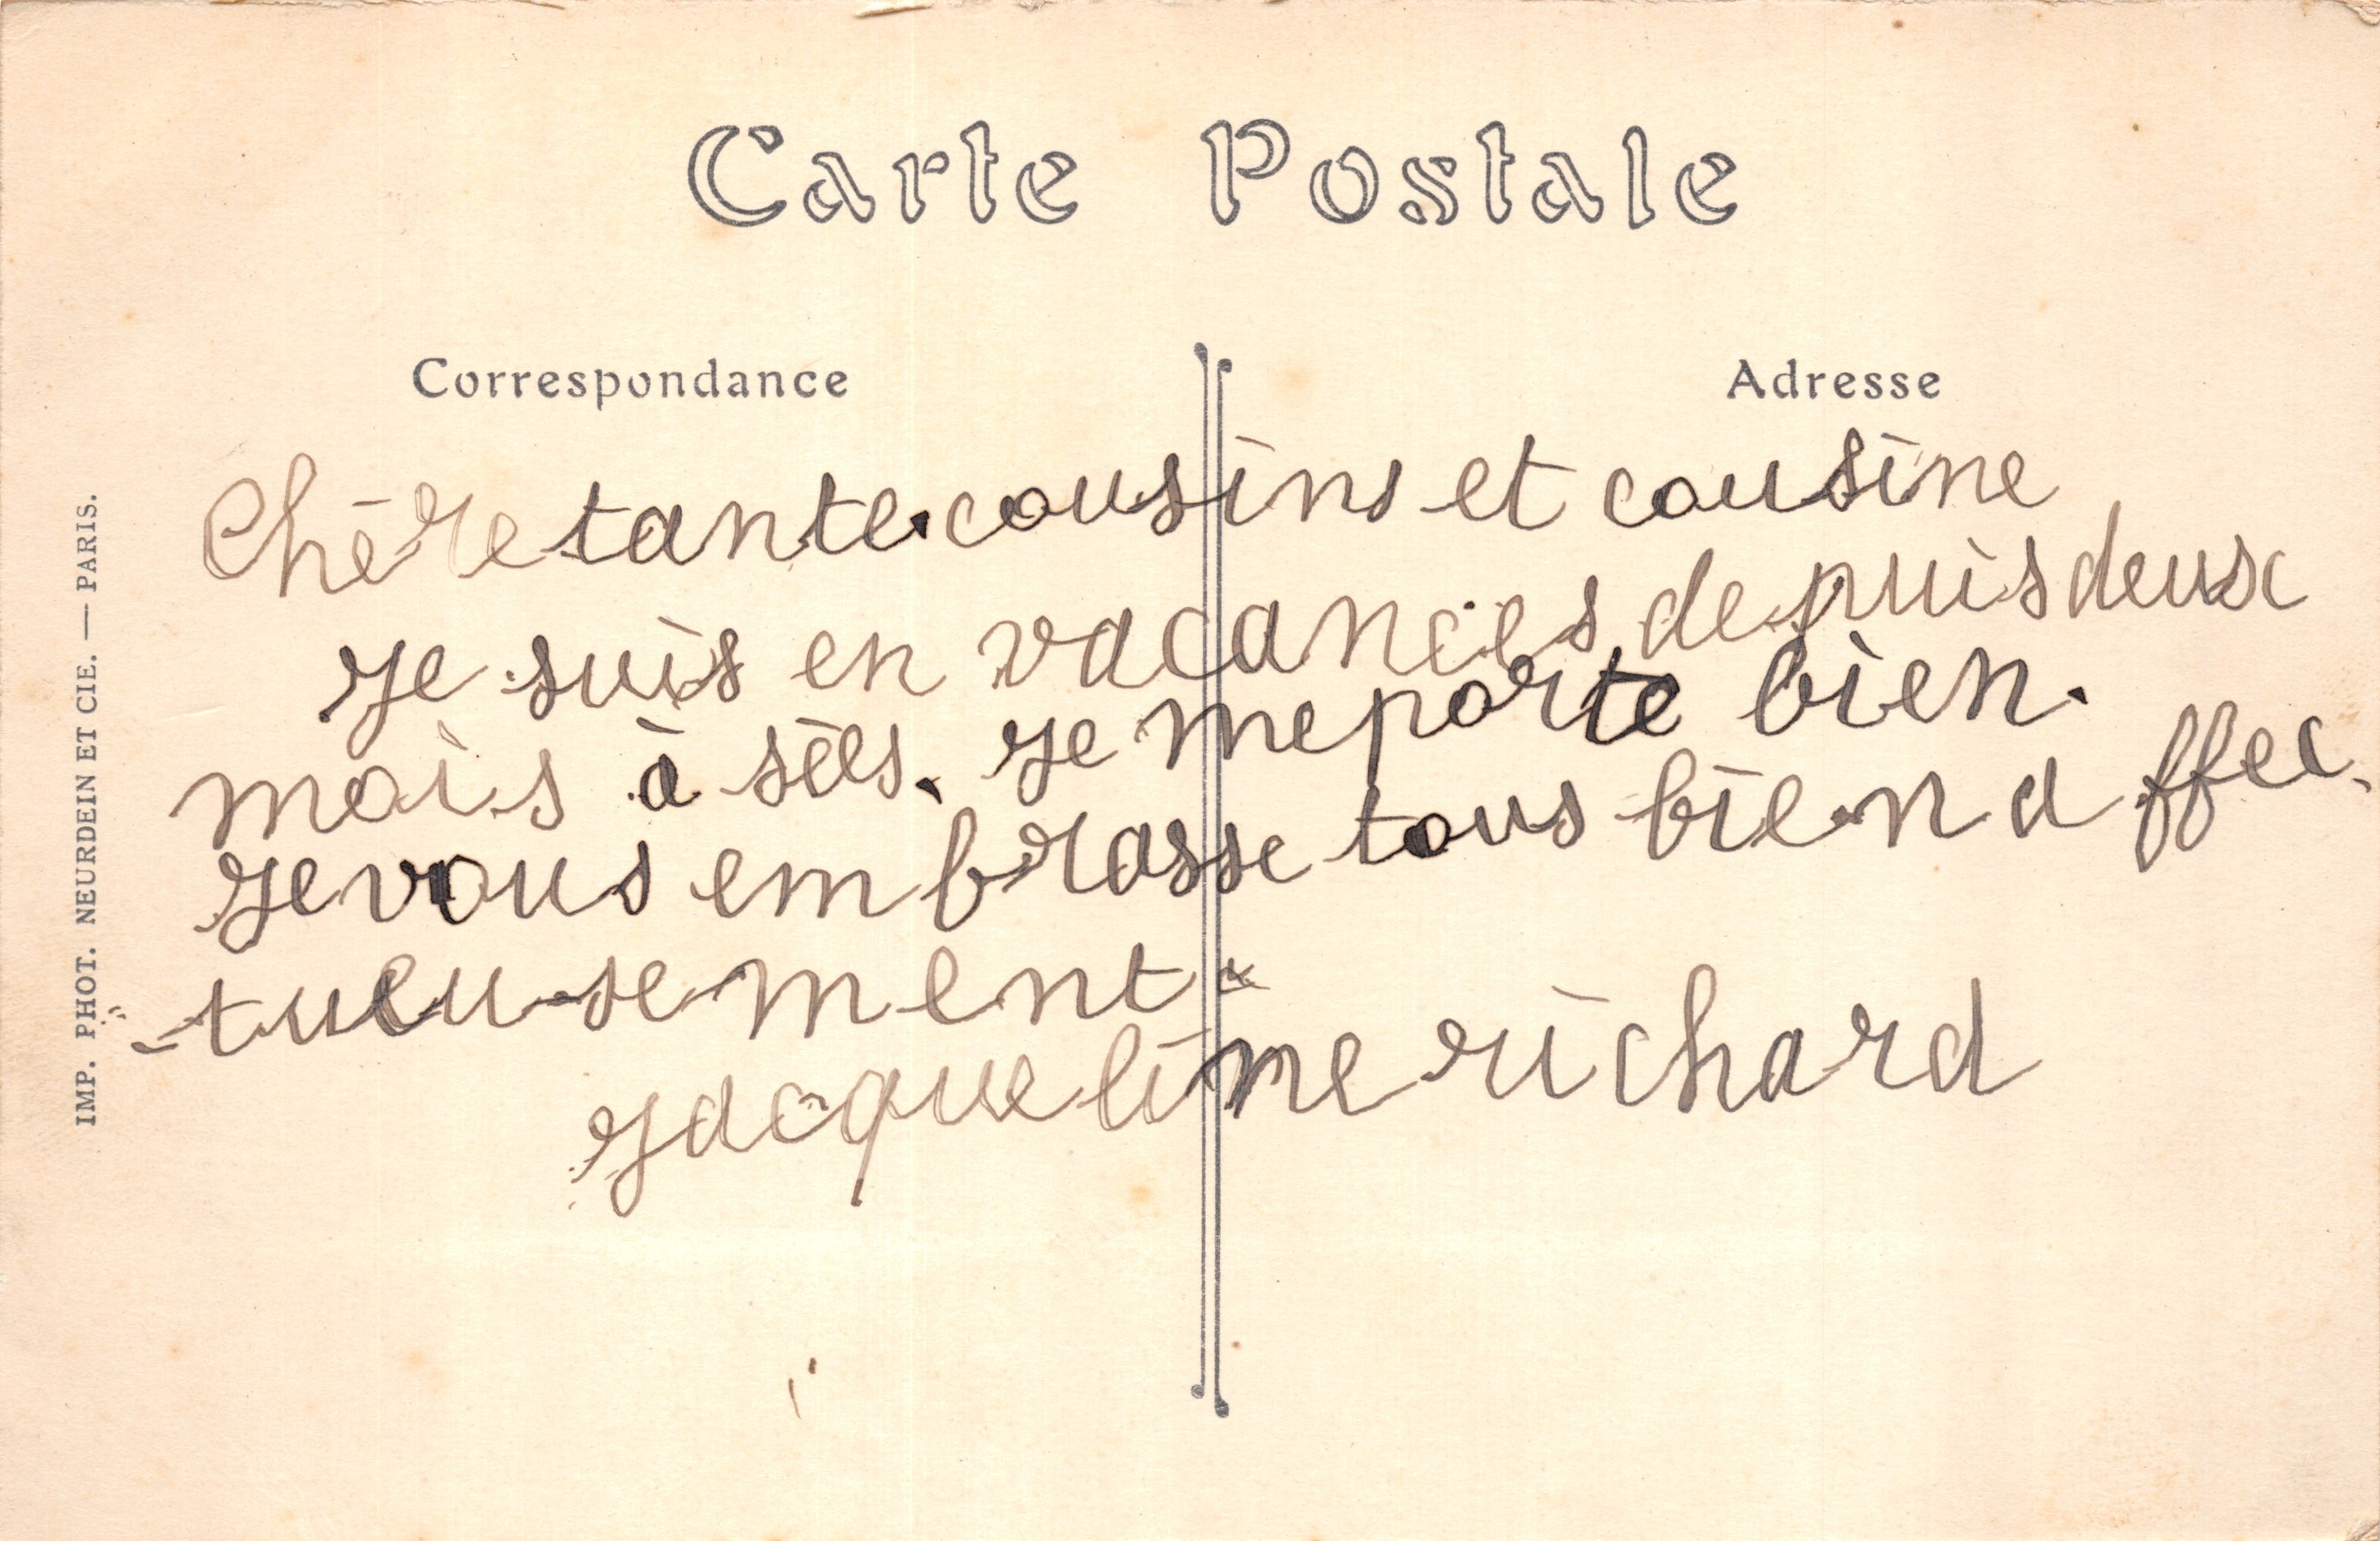 Carte Postale
Correspondance
Adresse
Chère tante. cousins et cousine
je suis en vacances depuis deux
mois à sées. je me porte bien.
je vous embrasse tous bien affec-
-tueusement.
jacqueline richard
IMP. PHOT. NEURDEIN ET CIE. — PARIS.